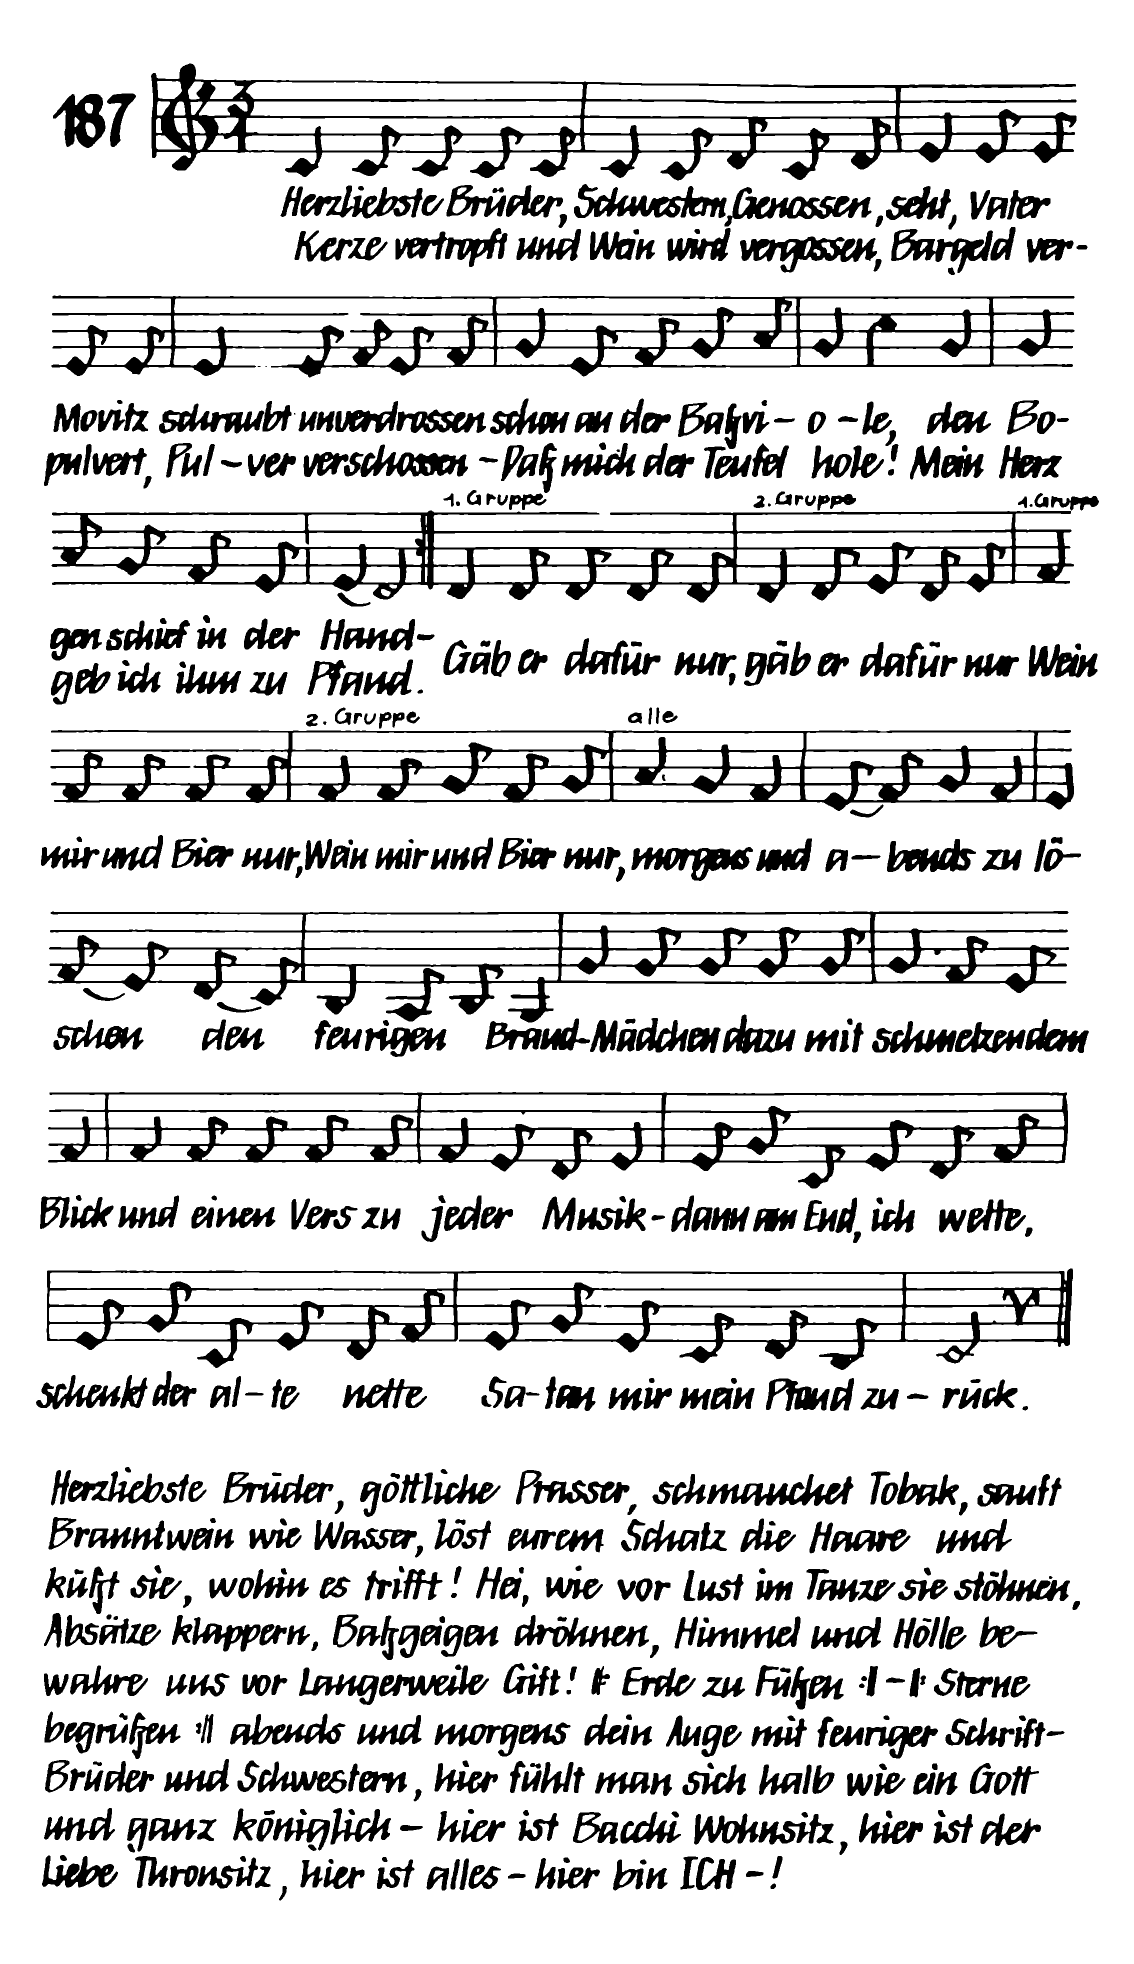 187
3
4
Herzliebste Brüder, Schwestern, Genossen, seht, Vater
Kerze vertropft und Wein wird vergossen, Bargeld ver-
Movitz schraubt unverdrossen schon an der Baßvi - o - le, den Bo-
pulvert, Pul - ver verschossen - Daß mich der Teufel hole! Mein Herz
1. Gruppe 2. Gruppe 1. Gruppe
gen schief in der Hand-
geb ich ihm zu Pfand.
Gäb er dafür nur, gäb er dafür nur Wein
2. Gruppe alle
mir und Bier nur, Wein mir und Bier nur, morgens und a - bends zu lö-
schen den feurigen Brand - Mädchen dazu mit schmelzendem
Blick und einen Vers zu jeder Musik - dann am End, ich wette,
schenkt der al - te nette Sa - tan mir mein Pfand zu - rück.
Herzliebste Brüder, göttliche Prasser, schmauchet Tobak, sauft
Branntwein wie Wasser, löst eurem Schatz die Haare und
küßt sie, wohin es trifft! Hei, wie vor Lust im Tanze sie stöhnen,
Absätze klappern, Baßgeigen dröhnen, Himmel und Hölle be-
wahre uns vor Langerweile Gift! |: Erde zu Füßen :| - |: Sterne
begrüßen :|| abends und morgens dein Auge mit feuriger Schrift -
Brüder und Schwestern, hier fühlt man sich halb wie ein Gott
und ganz königlich - hier ist Bacchi Wohnsitz, hier ist der
Liebe Thronsitz, hier ist alles - hier bin ICH - !